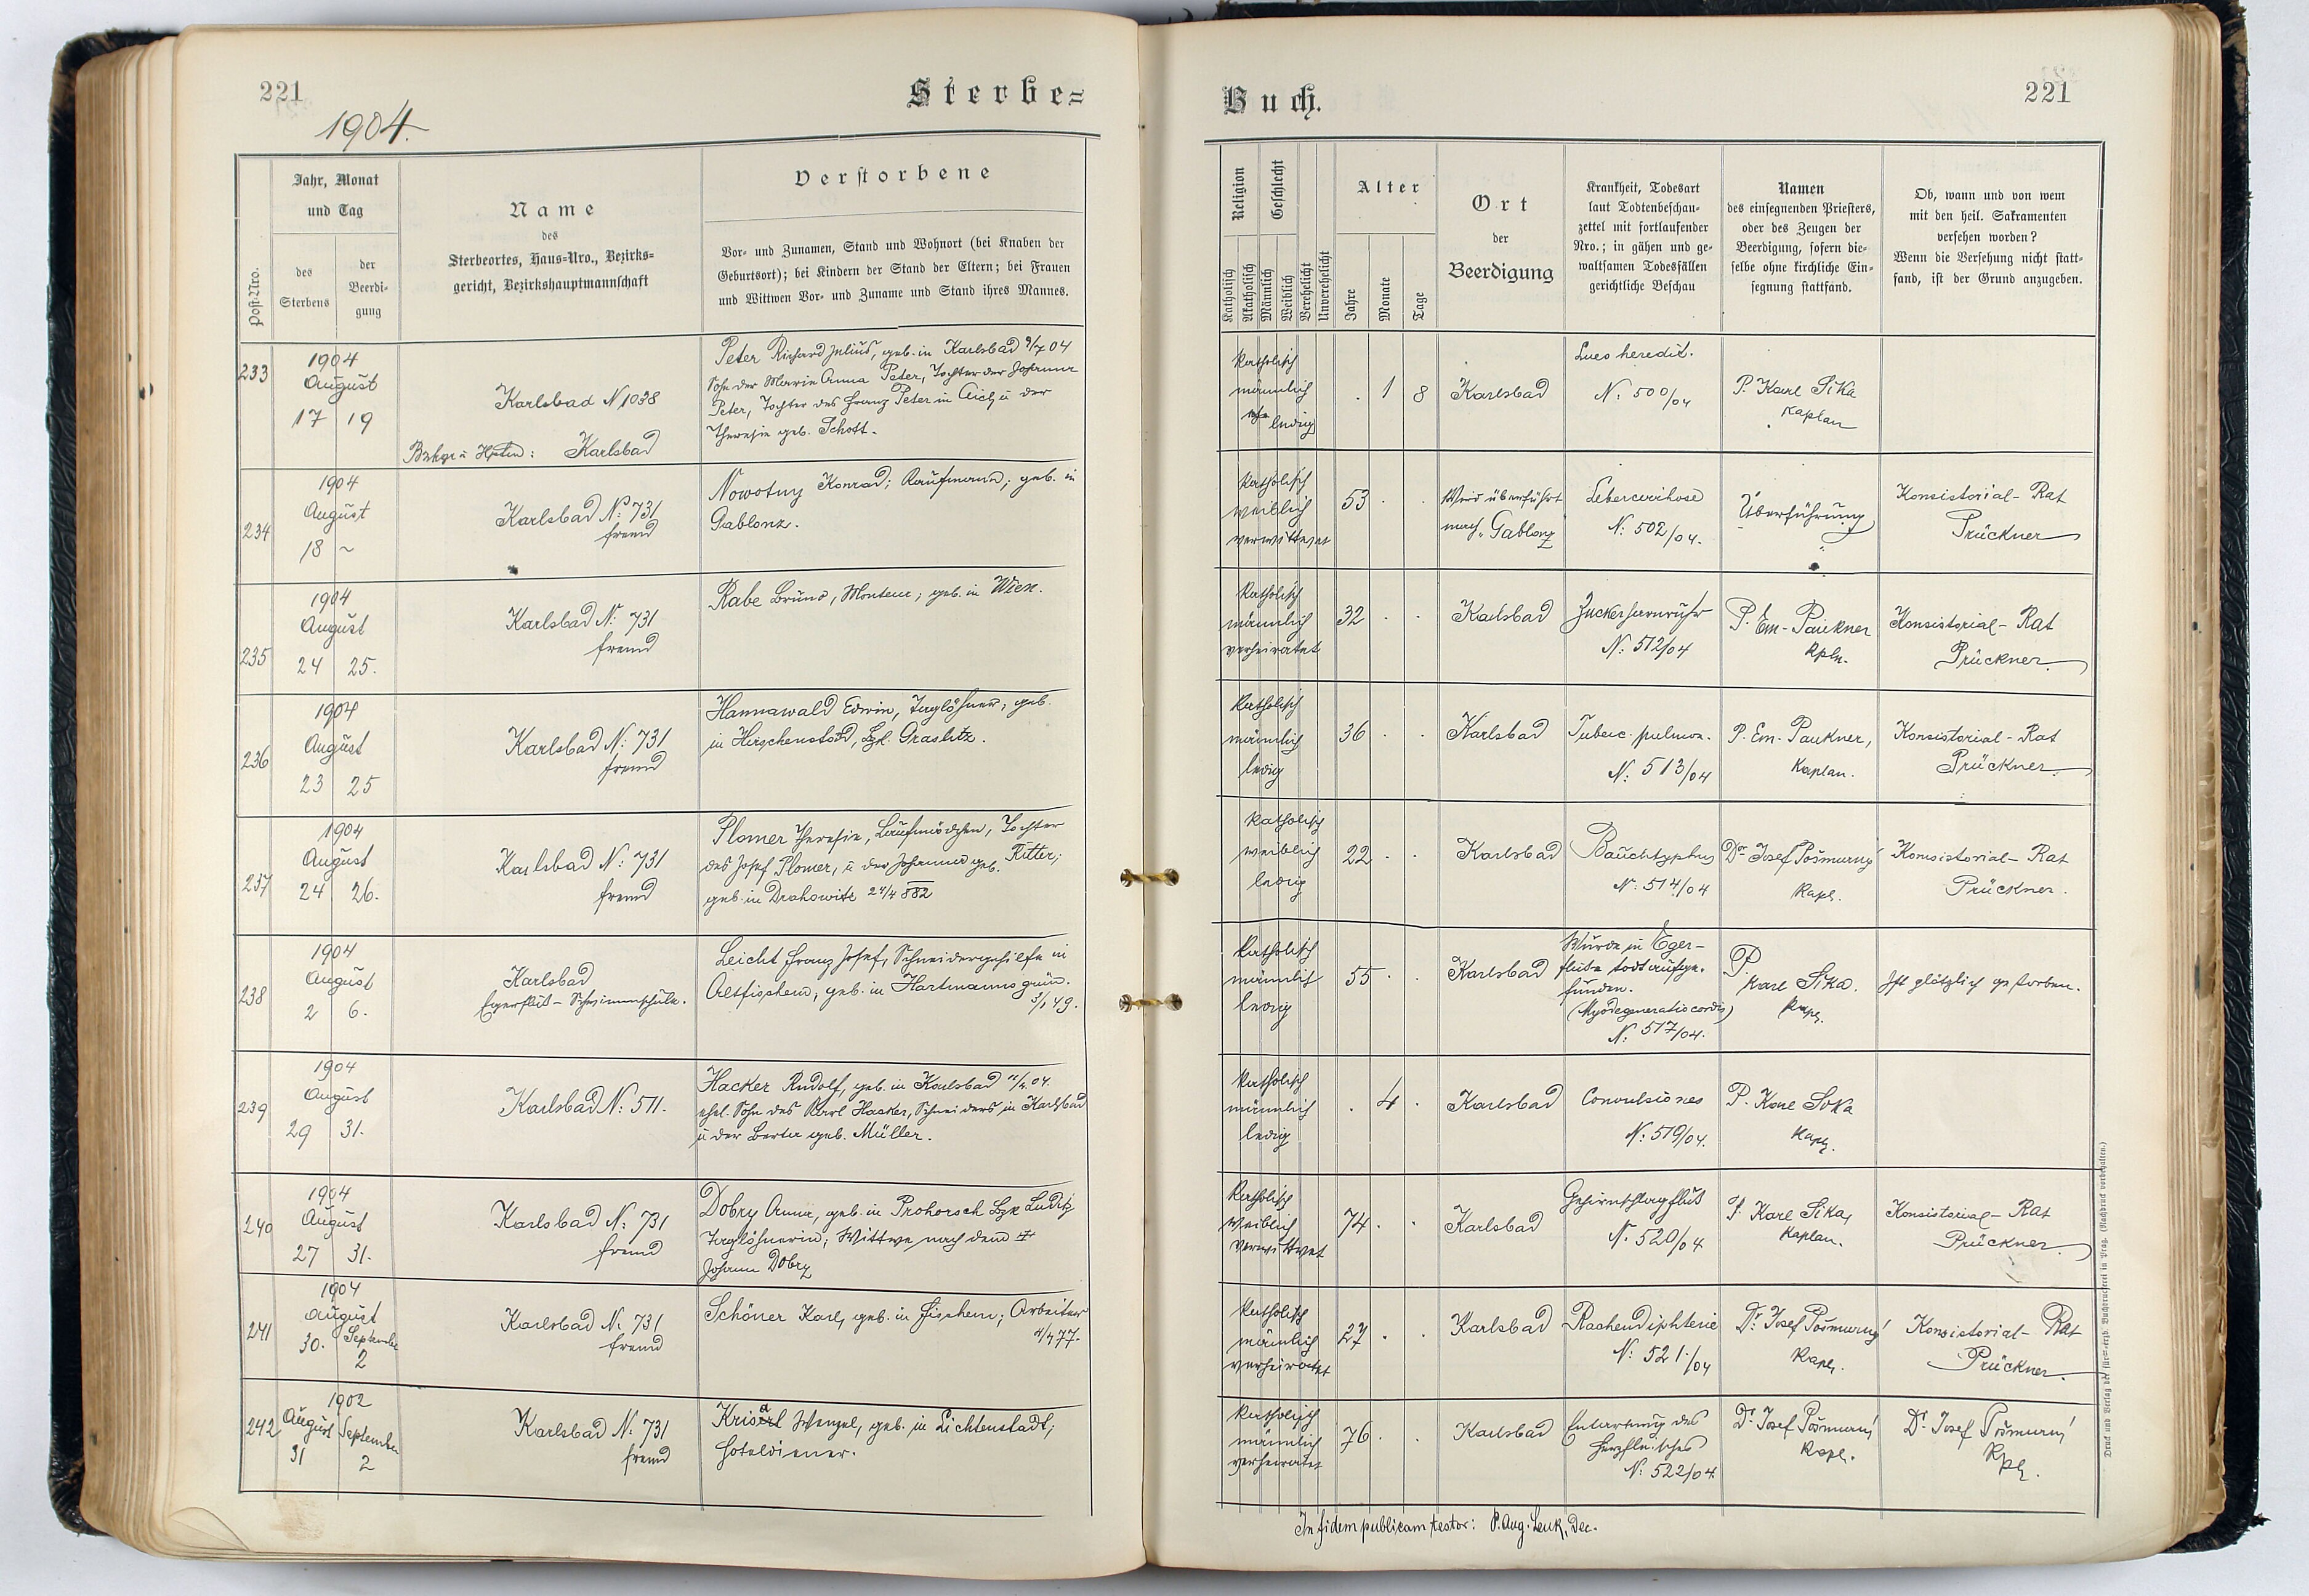 221
1904.
Sterbe=
Post-Nro.
Jahr, Monat
und Tag
des
Sterbens
der
Beerdi-
gung
Name
des
Sterbeortes, Haus-Nro., Bezirks=
gericht, Bezirkshauptmannschaft
Verstorbene
Vor- und Zunamen, Stand und Wohnort (bei Knaben der
Geburtsort); bei Kindern der Stand der Eltern; bei Frauen
und Wittwen Vor- und Zuname und Stand ihres Mannes.
233
1904
August
17 19
Karlsbad N 1038
Karlsbad
Peter Richard Julius, geb. in Karlsbad 9/7 04
Sohn der Maria Anna Peter, Tochter der Johanna
Peter, Tochter des Franz Peter in Aich u der
Theresie geb. Schott.
234
1904
August
18 ~
Karlsbad No: 731
fremd
Nowotny Konrad; Kaufmann; geb. in
Gablonz.
235
1904
August
24 25.
Karlsbad N: 731
fremd
Rabe Bruno, Monteur; geb. in Wien.
236
1904
August
23 25
Karlsbad N: 731
fremd
Hannawald Edwin, Taglöhner, geb.
in Hirschenstand, Bzk. Graslitz.
237
1904
August
24 26.
Karlsbad N: 731
fremd
Plomer Theresie, Laufmädchen, Tochter
des Josef Plomer, u der Johanna geb. Ritter;
geb. in Drahowitz 24/4 882
238
1904
August
2 6.
Karlsbad
Egerfluß-Schwimmschule.
Leicht Franz Josef, Schneidergehilfe in
Altfischern, geb. in Hartmannsgrün.
3/1 49.
239
1904
August
29 31.
Karlsbad N: 511.
Hacker Rudolf, geb. in Karlsbad 11/4. 04.
ehel. Sohn des Karl Hacker, Schneiders in Karlsbad
u der Berta geb. Müller.
240
1904
August
27 31.
Karlsbad N: 731
fremd
Dobry Anna, geb. in Prohorsch Bzk Luditz
Taglöhnerin; Wittwe nach dem +
Johann Dobry
241
1904
August
30. September
2
Karlsbad N: 731
fremd
Schöner Karl, geb. in Fischern; Arbeiter
77.
242
1902
August September
31 2
Karlsbad N: 731
fremd
Wenzel, geb. in Lichtenstadt;
Hoteldiener.
Buch.
221
Religion
Katholisch
Akatholisch
Geschlecht
Männlich
Weiblich
Verehelicht
Unverehelicht
Alter
Jahre
Monate
Tage
Ort
der
Beerdigung
Krankheit, Todesart
laut Todtenbeschau-
zettel mit fortlaufender
Nro.; in gähen und ge-
waltsamen Todesfällen
gerichtliche Beschau
Namen
des einsegnenden Priesters,
oder des Zeugen der
Beerdigung, sofern die-
selbe ohne kirchliche Ein-
segnung stattfand.
Ob, wann und von wem
mit den heil. Sakramenten
versehen worden?
Wenn die Versehung nicht statt-
fand, ist der Grund anzugeben.
Katholisch
männlich
ledig
. 1 8
Karlsbad
Lues heredit.
N: 500/04
P. Karl Sika
Kaplan
Katholisch
weiblich
verwittwet
53 . .
Wird überführt
nach Gablonz
Lebercirrhose
N: 502/04.
Überführung
Konsistorial-Rat
Prückner
Katholisch
männlich
verheiratet
32 . .
Karlsbad
Zuckerharnruhr
N: 512/04
P. Em. Paukner
Kpln.
Konsistorial-Rat
Prückner.
Katholisch
männlich
ledig
36 . .
Karlsbad
Tuberc. pulmon.
N: 513/04
P. Em. Paukner,
Kaplan.
Konsistorial-Rat
Prückner.
Katholisch
weiblich
ledig
22 . .
Karlsbad
Bauchtyphus
N: 514/04
Dr. Josef Pošmurný
Kapl.
Konsistorial-Rat
Prückner.
Katholisch
männlich
ledig
55 . .
Karlsbad
Wurde im Eger-
fluße todt aufge-
funden.
(Myodegeneratio cordis)
N: 517/04.
P.
Karl Sika.
Kapl.
Ist plötzlich gestorben.
Katholisch
männlich
ledig
. 4 .
Karlsbad
Convulsiones
N: 519/04.
P. Karl Sika
Kapl.
Katholisch
weiblich
verwittwet
74 . .
Karlsbad
Gehirnschlagfluß
N. 520/04
P. Karl Sika,
Kaplan.
Konsistorial-Rat
Prückner.
Katholisch
männlich
verheiratet
27 . .
Karlsbad
Rachendiphterie
N: 521./04
Dr. Josef Pošmurný
Kapl.
Konsistorial-Rat
Prückner.
Katholisch
männlich
verheiratet
76 . .
Karlsbad
Entartung des
Herzfleisches
N: 522/04
Dr. Josef Pošmurný
Kapl.
Dr. Josef Pošmurný
Kpl.
In fidem publicam testor: P. Aug. Lenk, Dec.
Druck und Verlag der fürst-erzb. Buchdruckerei in Prag. (Nachdruck vorbehalten.)